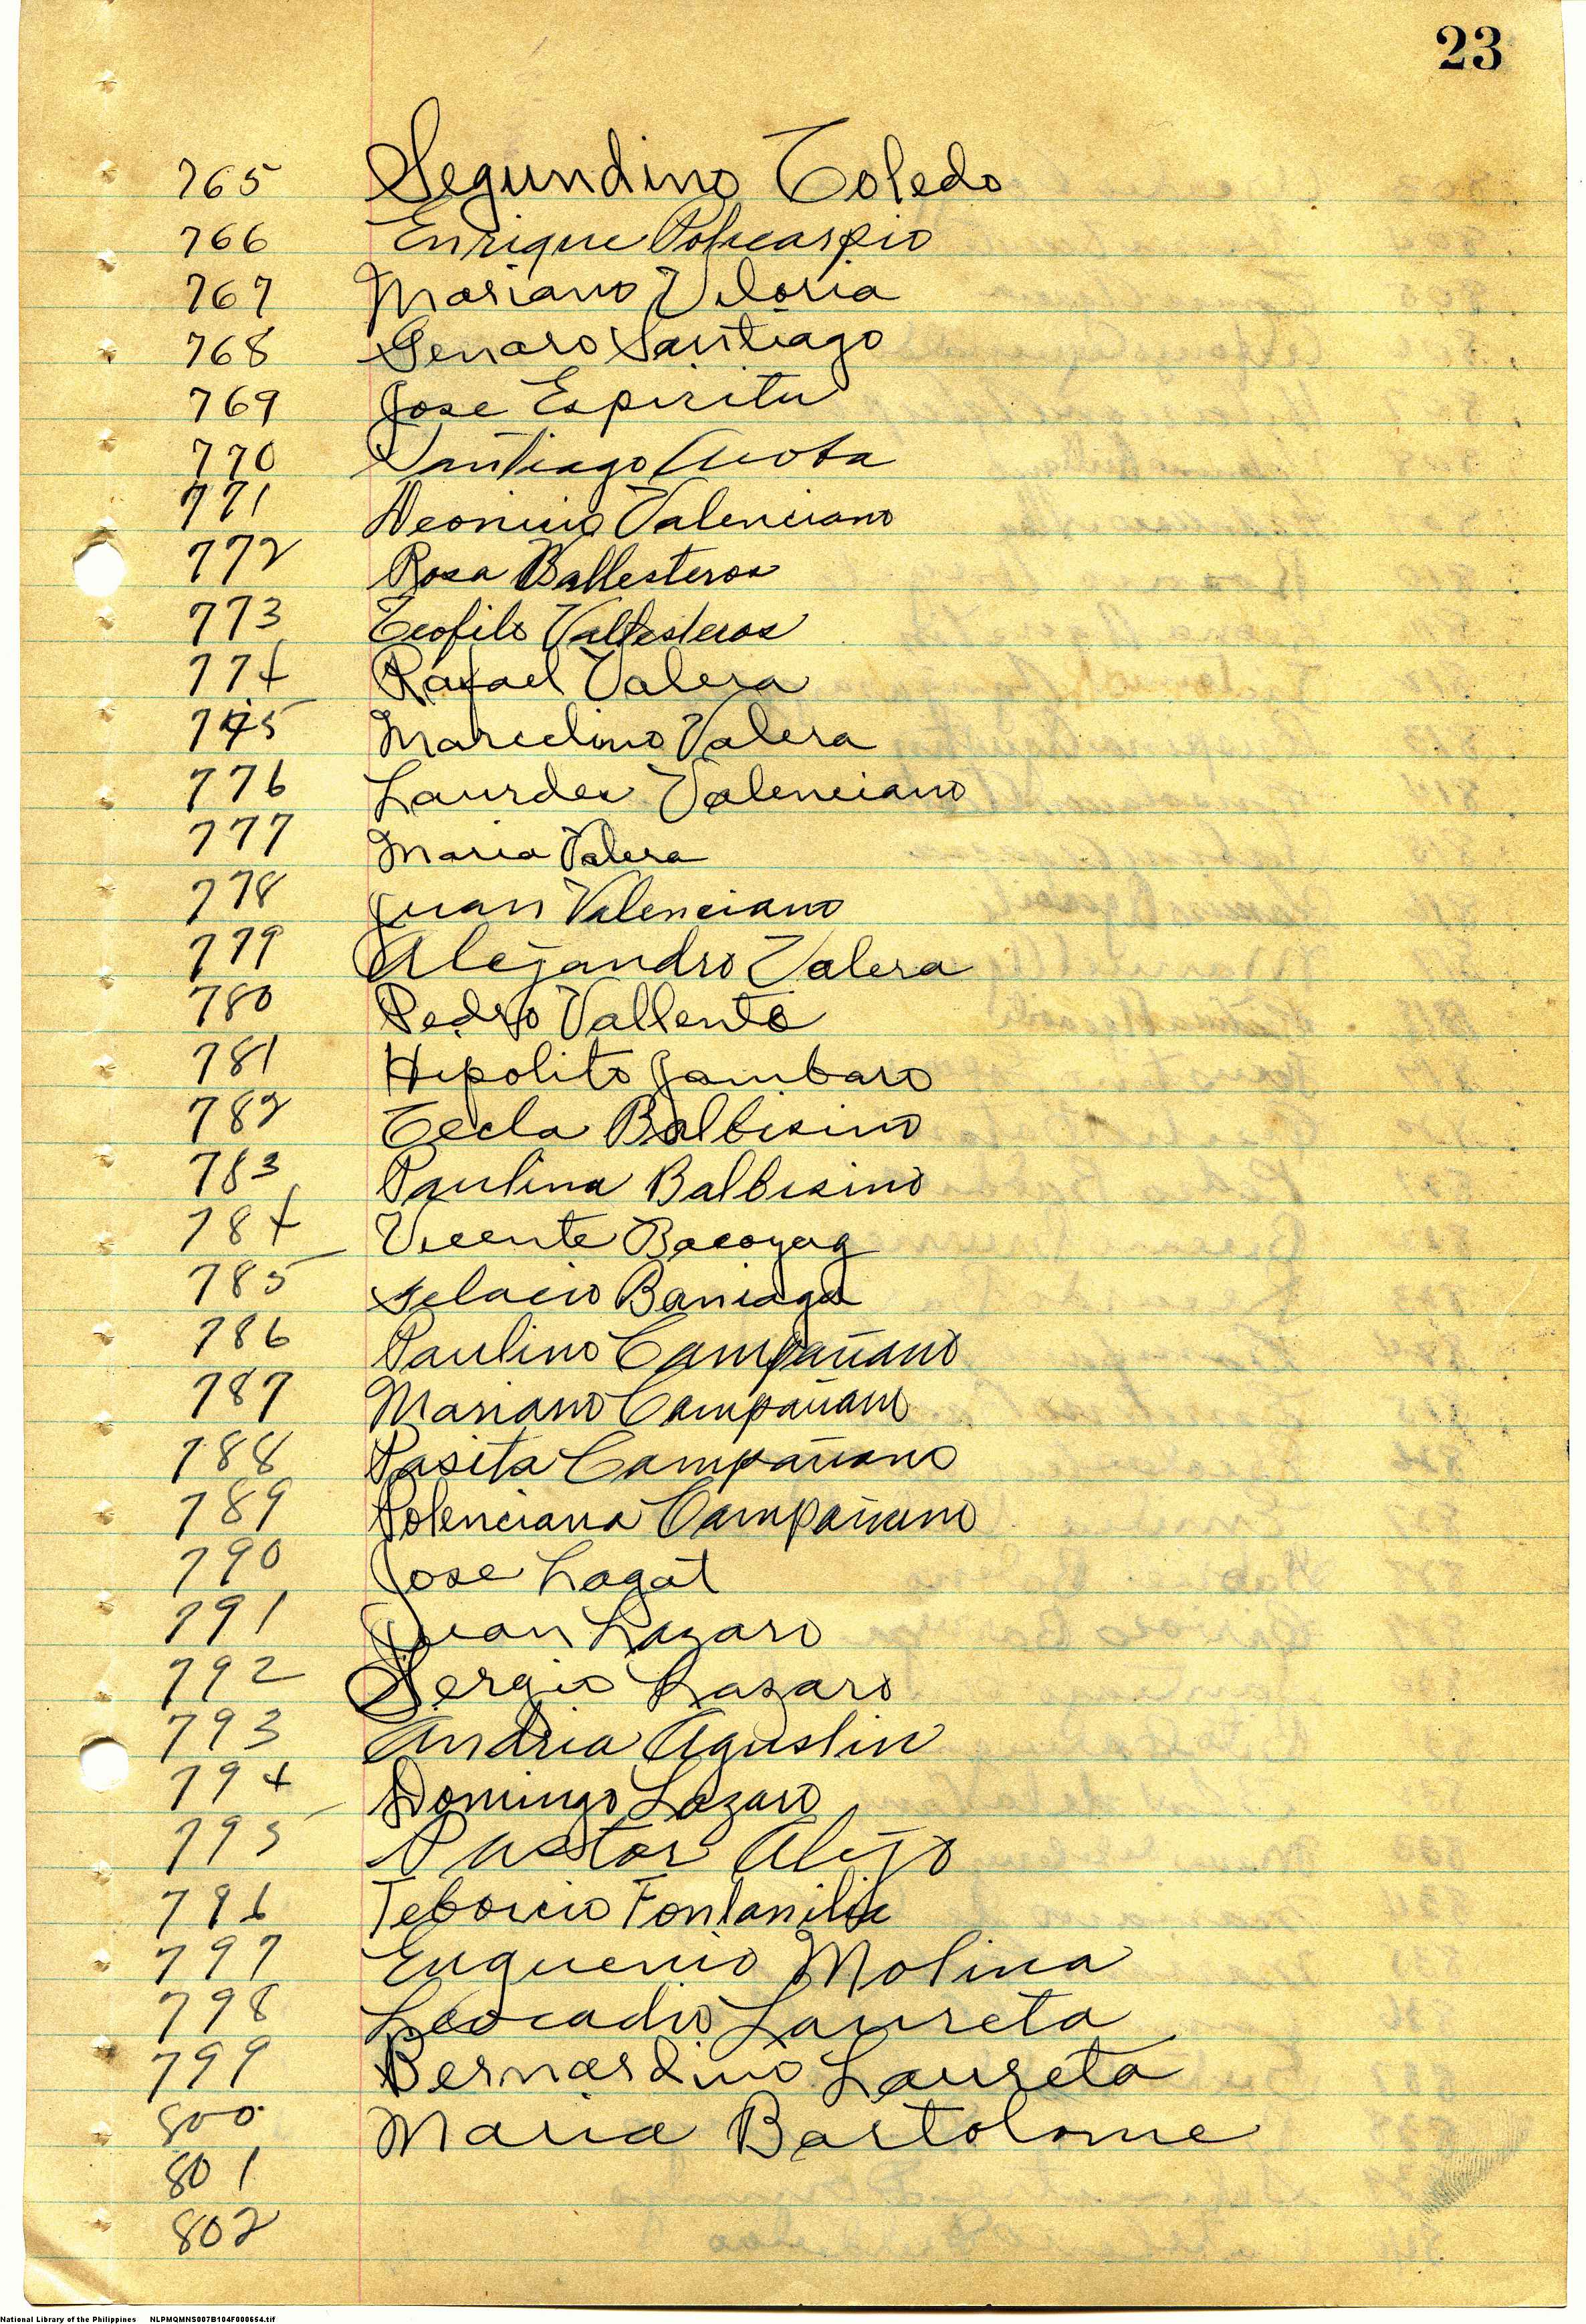 23
765 Segundino Toledo
766 Enrique Policarpio
767 Mariano Viloria
768 Genaro Santiago
769 Jose Espiritu
770 Santiago
771 Deonicio Valenciano
772 Rosa Ballesteros
773 Teofilo Vallesteros
774 Rafael Valera
775 Marcelino Valera
776 Lourdes Valenciano
777 Maria Valera
778 Juan Valenciano
779 Alejandro Valera
780 Pedro Vallente
781 Hipolito Gambaro
782 Tecla Balbisino
783 Paulina Balbisino
784 Vicente Bacoyag
785 Baniaga
786 Paulino Campañano
787 Mariano Campañano
788 Pasita Campañano
789 Polenciana Campañano
790 Jose Lagat
791 Juan Lazaro
792 Sergio Lazaro
793 Andria Agustin
794 Domingo Lazaro
795 Pastor Alejo
796 Fontanilla
797 Euguenio Molina
798 Leocadio Laureta
799 Bernardino Laureta
800 Maria Bartolome
801
802
National Library of the Philippines NLPMQMNS007B104F000654.tif